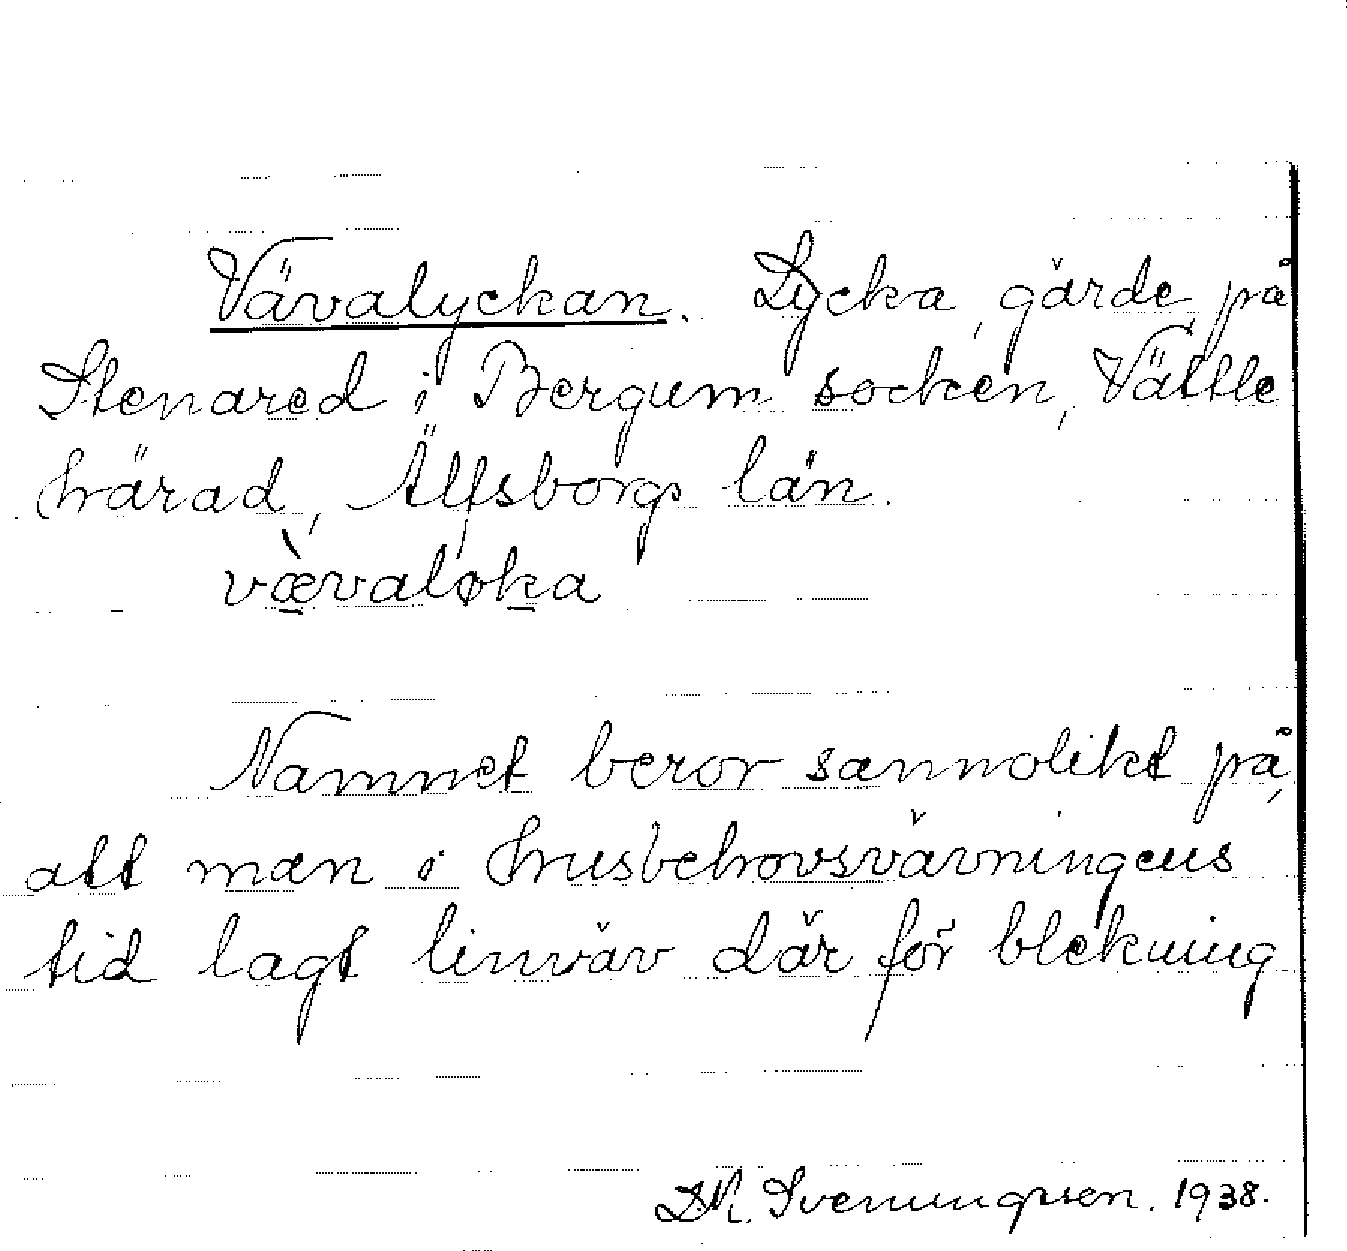 Vävalyckan. Lycka, gärde på
Stenared i Bergum socken, Vättle
härad, Älfsborgs län.
væ̀valøka
Namnet beror sannolikt på,
att man i husbehovsvävningens
tid lagt linväv där för blekning
Sveningsson. 1938.